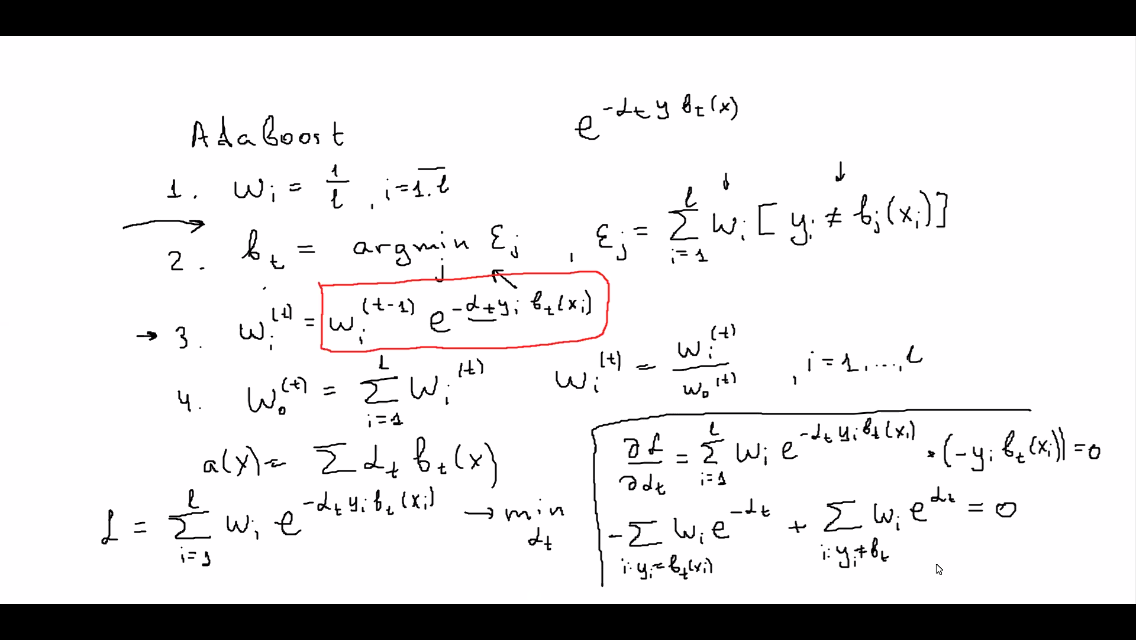 AdaBoost
e^{-α_t y b_t(x)}
1. w_i = 1/l , i = \overline{1.l}
2. b_t = argmin_j ε_j , ε_j = Σ_{i=1}^{l} w_i [ y_i ≠ b_j(x_i) ]
3. w_i^{(t)} = w_i^{(t-1)} e^{-α_t y_i b_t(x_i)}
4. w_0^{(t)} = Σ_{i=1}^{l} w_i^{(t)} w_i^{(t)} = w_i^{(t)} / w_0^{(t)} , i = 1, ..., l
a(x) = Σ α_t b_t(x)
L = Σ_{i=1}^{l} w_i e^{-α_t y_i b_t(x_i)} → min_{α_t}
∂L/∂α_t = Σ_{i=1}^{l} w_i e^{-α_t y_i b_t(x_i)} · (-y_i b_t(x_i)) = 0
- Σ_{i: y_i = b_t(x_i)} w_i e^{-α_t} + Σ_{i: y_i ≠ b_t} w_i e^{α_t} = 0